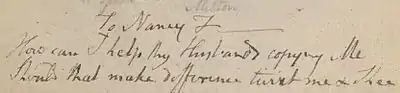 To Nancy F——
How can I help thy Husbands copying Me
Should that make difference twixt me & Thee